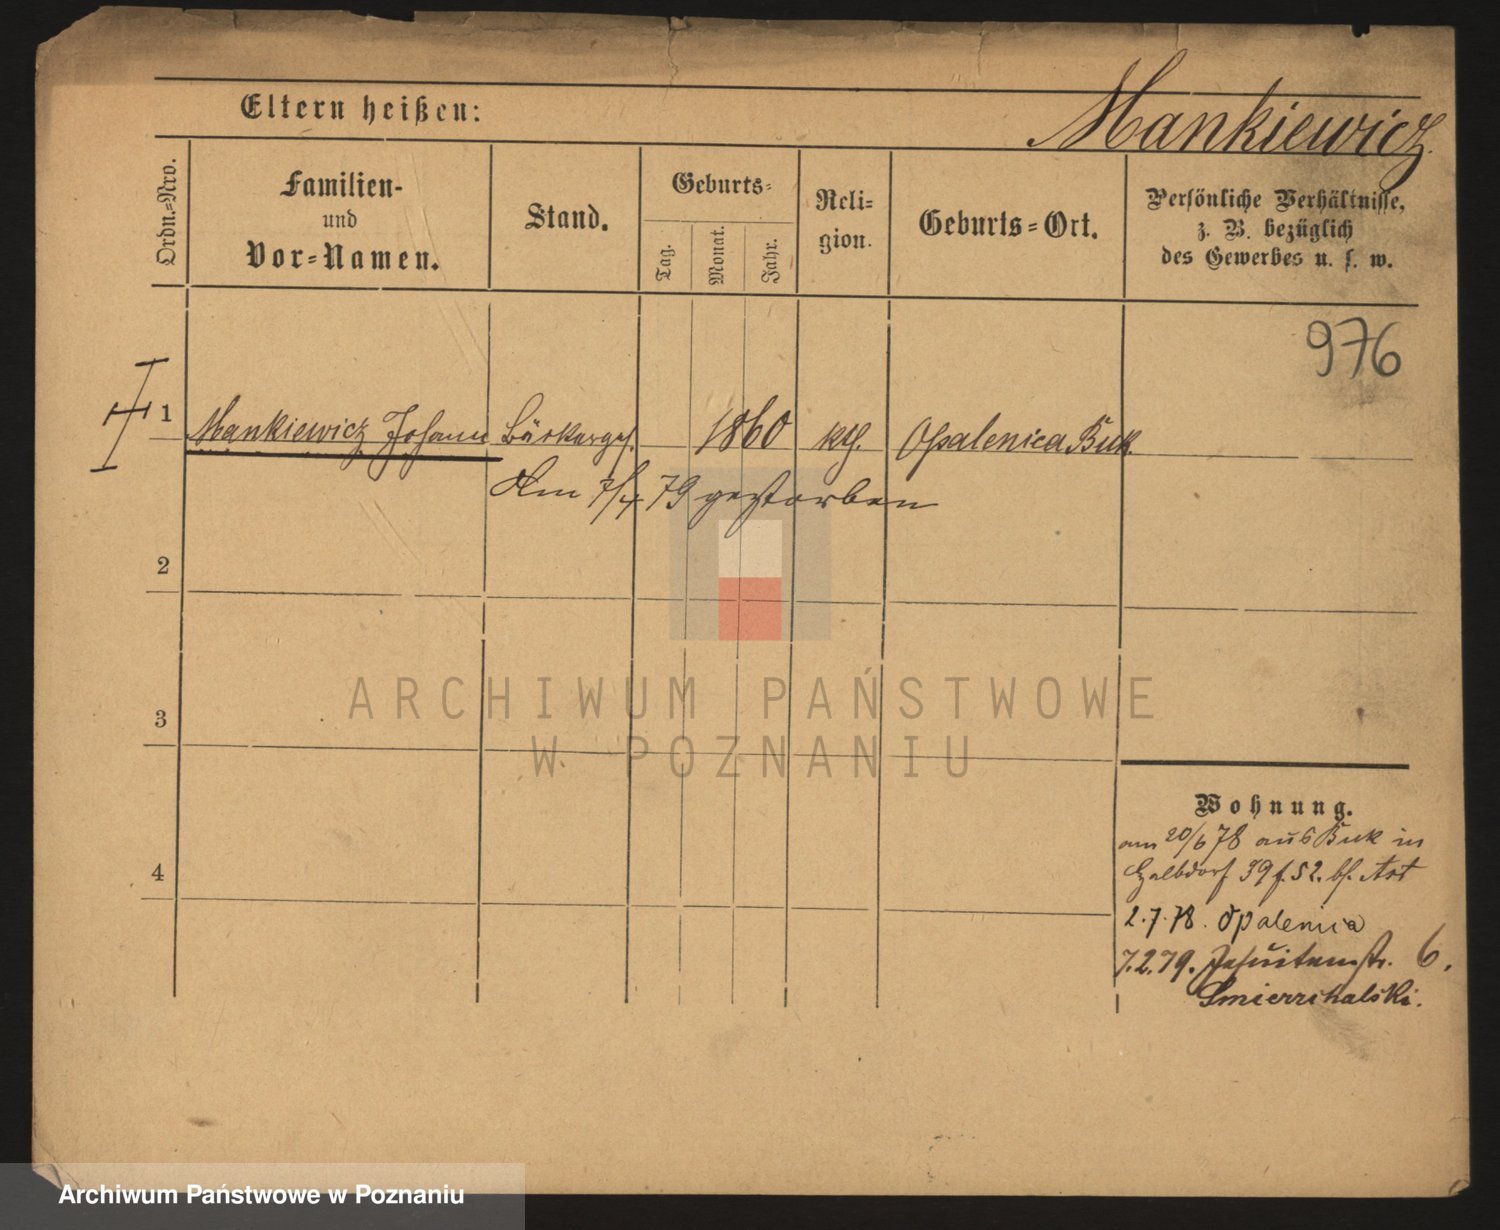 Mankiewicz.
Eltern heißen:
Ordn.-Nro.
Familien-
und
Vor-Namen.
Stand.
Geburts-
Tag.
Monat.
Jahr.
Reli-
gion.
Geburts-Ort.
Persönliche Verhältnisse,
z. B. bezüglich
des Gewerbes u. s. w.
976
1 Mankiewicz Johann Bäckerges. 1860 kth. Opalenica Buk.
Am 7/4 79 gestorben
2
3
4
ARCHIWUM PAŃSTWOWE
W POZNANIU
Wohnung.
am 20/6 78 aus Buk in
39 f. 52. bh.
2.7.78. Opalenica
7.2.79. Jesuitenstr. 6.
Archiwum Państwowe w Poznaniu